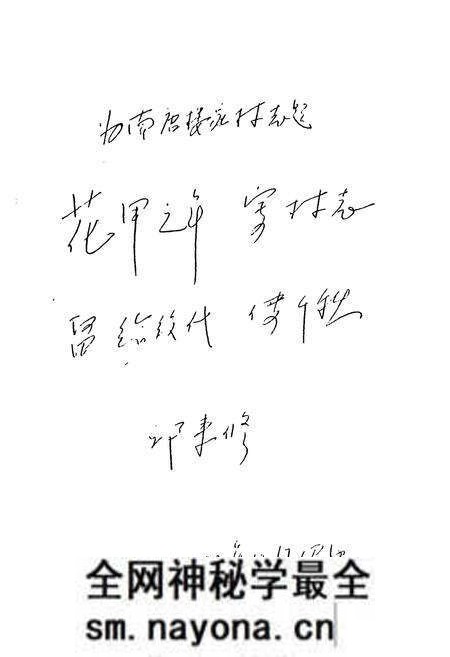 为南唐楼氏村志题
花甲之年 写村志
留给后代 传千秋
邓来修
全网神秘学最全
sm.nayona.cn